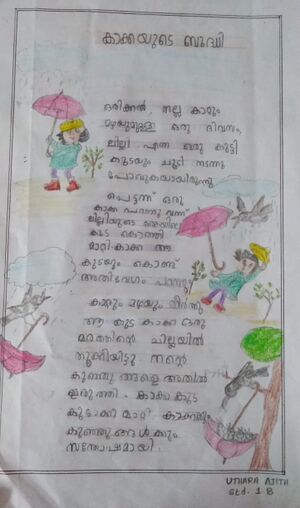 കാക്കയുടെ ബുദ്ധി
ഒരിക്കൽ നല്ല കാറ്റും
മഴയുമുള്ള ഒരു ദിവസം,
ലില്ലി എന്ന ഒരു കുട്ടി
കുടയും ചൂടി നടന്നു
പോവുകയായിരുന്നു
പെട്ടന്ന് ഒരു
കാക്ക പറന്നു വന്ന്
ലില്ലിയുടെ
കുട കൊത്തി
മാറ്റി കാക്ക ആ
കുടയും കൊണ്ട്
അതിവേഗം പറന്നു
കാറ്റും മഴയും തീർന്നു
ആ കുട കാക്ക ഒരു
മരത്തിന്റെ ചില്ലയിൽ
തൂക്കിയിട്ടു തന്റെ
കുഞ്ഞുങ്ങളെ അതിൽ
ഇരുത്തി. കാക്ക കുട
കൂടാക്കി മാറ്റി കാക്കയും
കുഞ്ഞുങ്ങൾക്കും
സന്തോഷമായി.
UTHARA AJITH
Std. 1 B